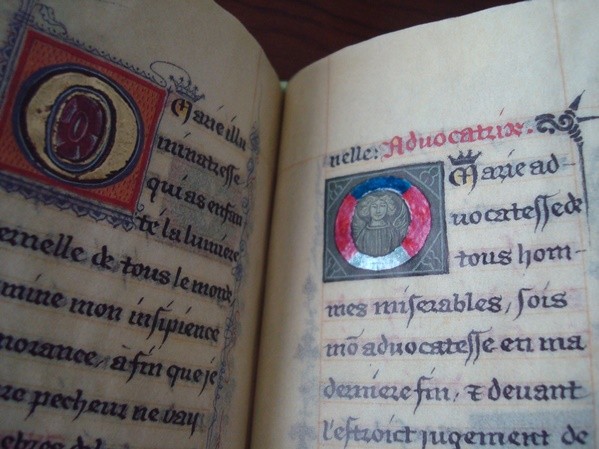 O Marie illu
minatresse
qui as enfan
té la lumiere
ernelle de tous le monde
mine mon insipience
norance, afin que je
re pecheur ne vay
nelle: Advocatrix.
O Marie ad-
uocatesse de
tous hom-
mes miserables, sois
mō aduocatesse en ma
derniere fin, & deuant
l'estroict iugement de